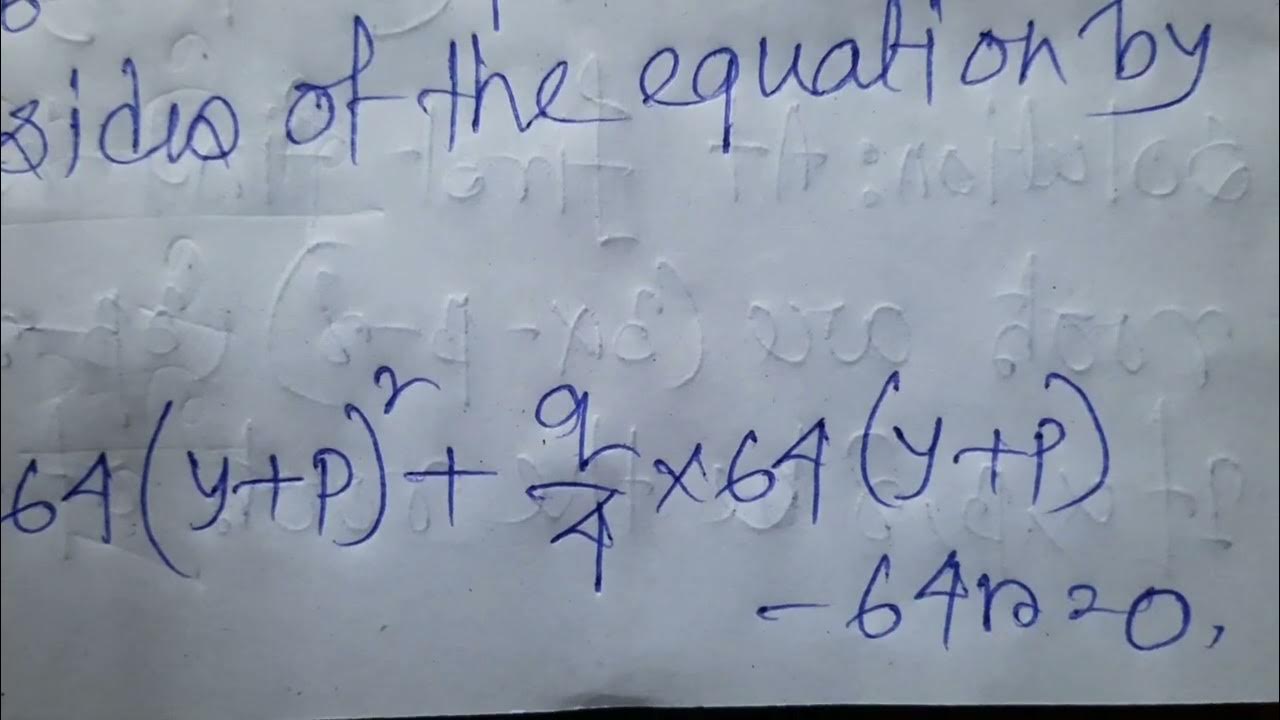 sides of the equation by
64(y+p)² + q/4 × 64(y+p)
- 64r = 0,